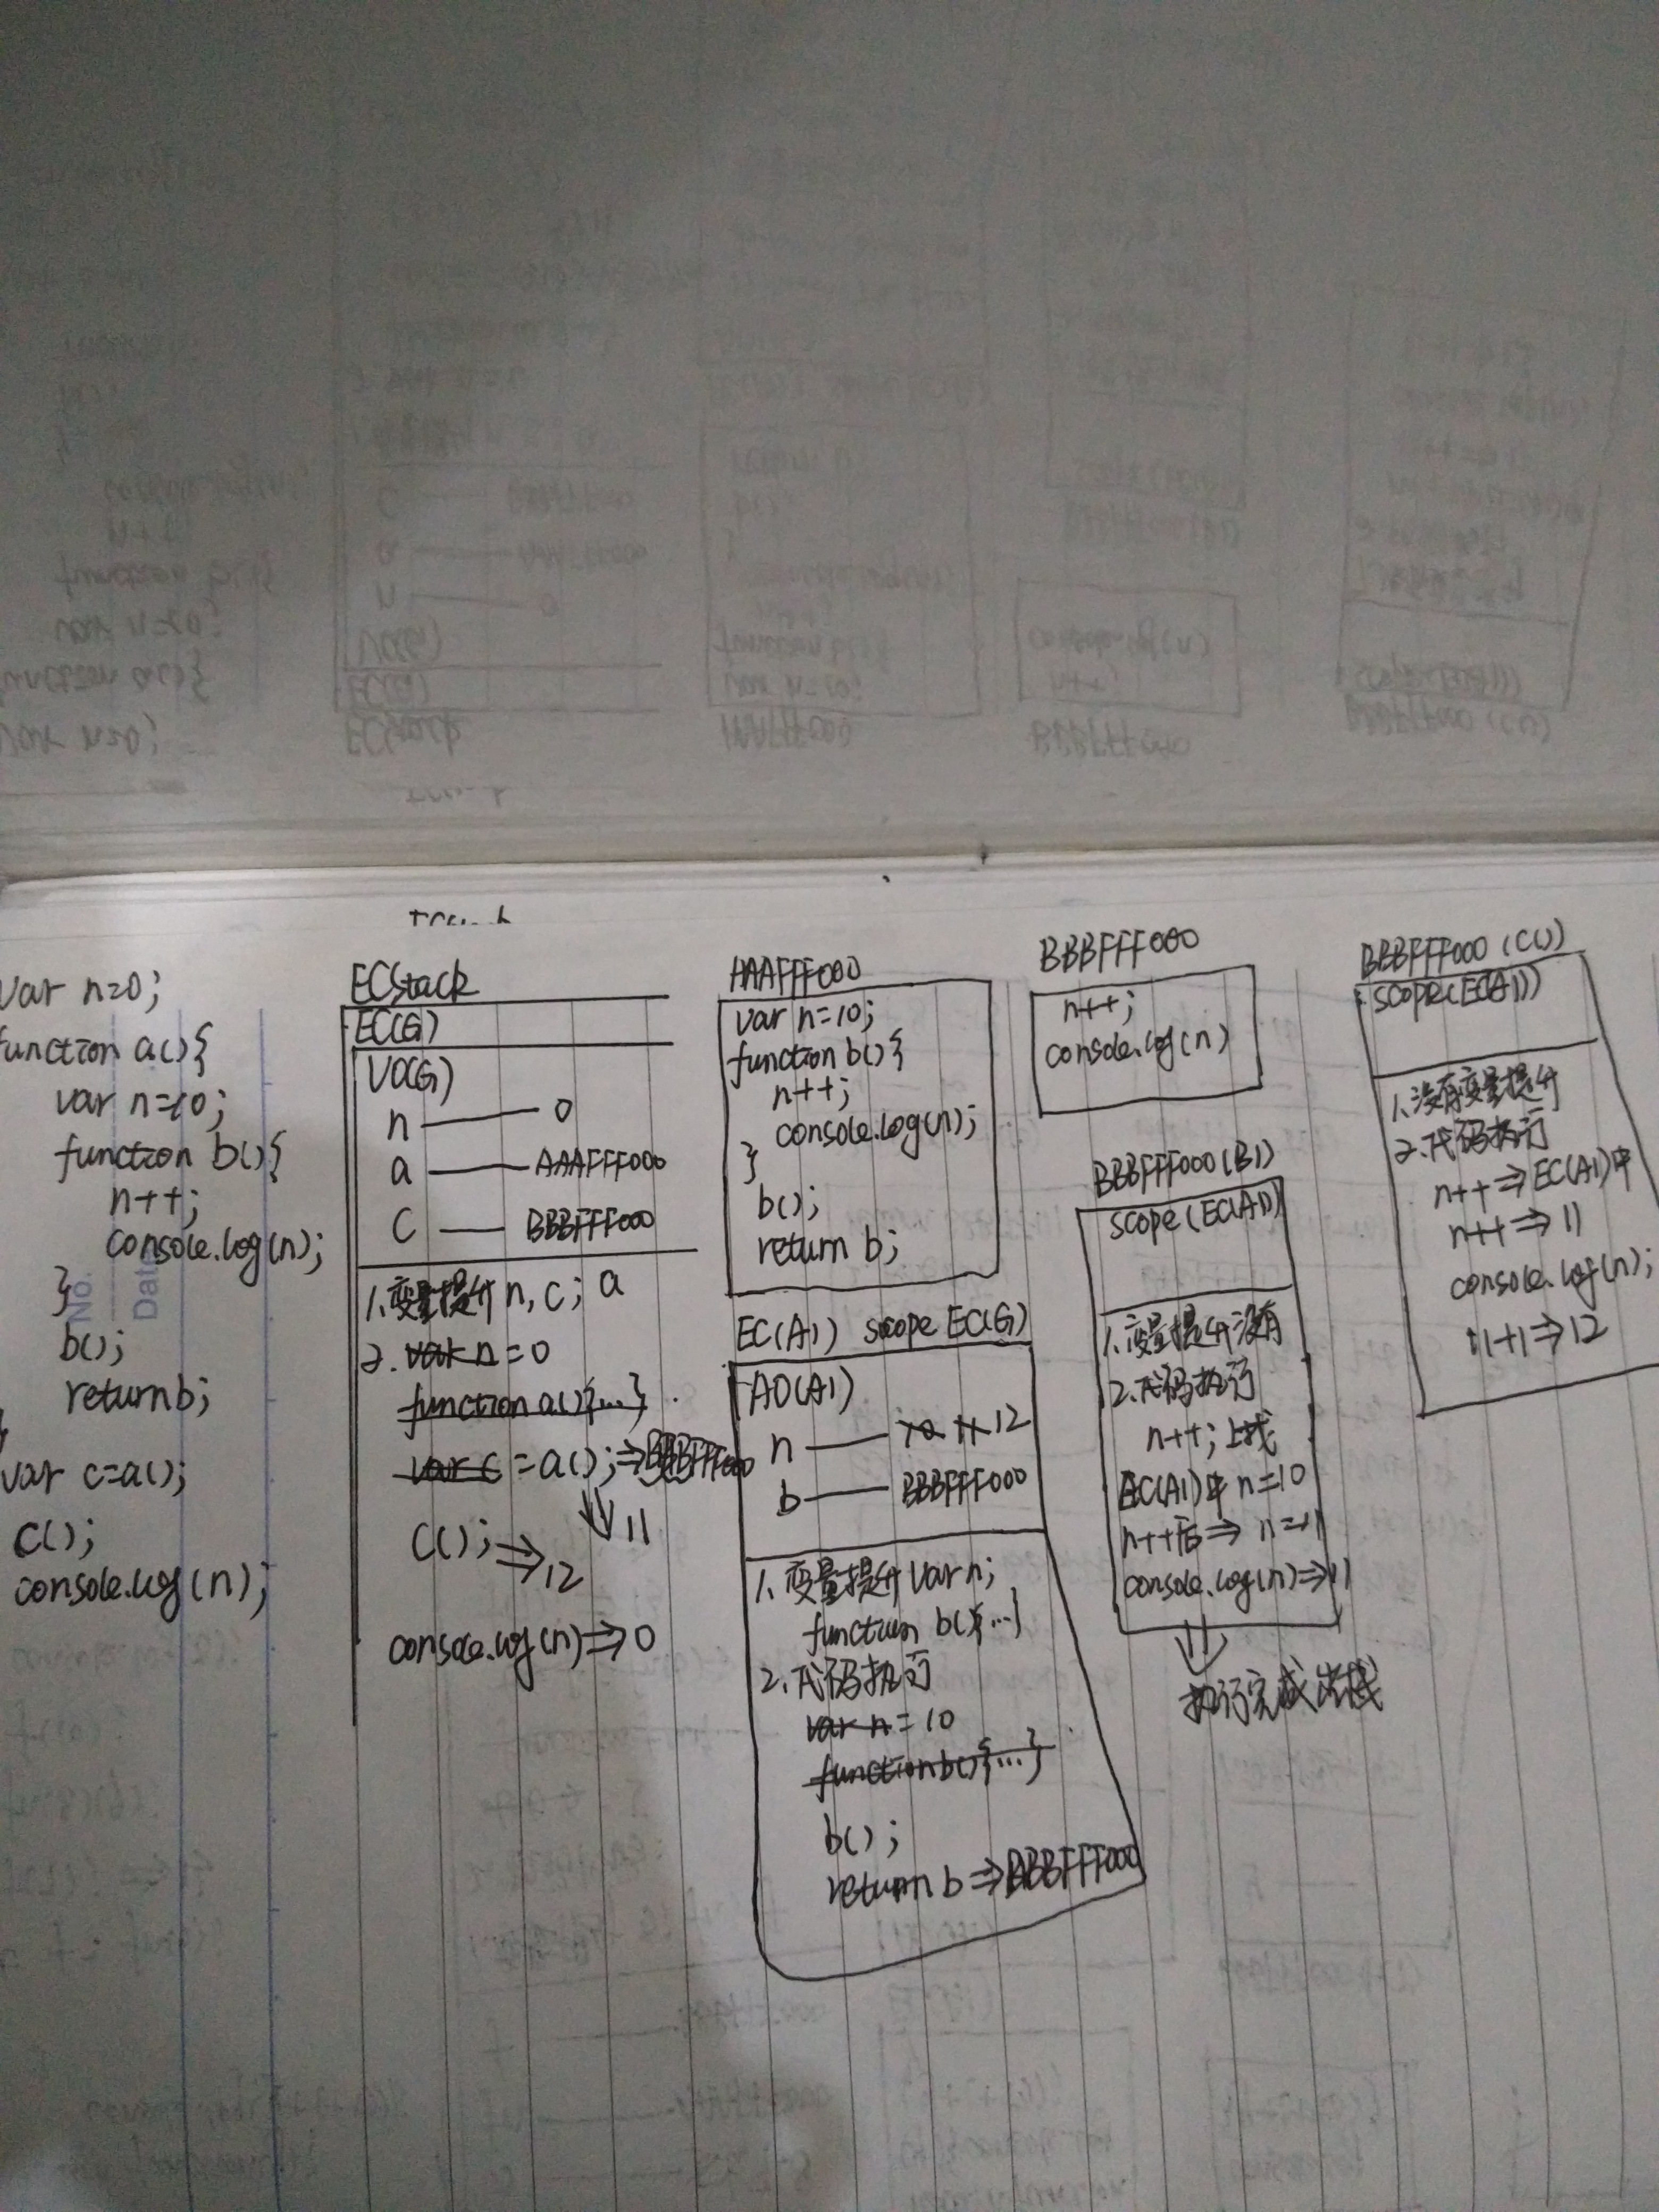 var n=0;
function a(){
var n=10;
function b(){
n++;
console.log(n);
}
b();
return b;
}
var c=a();
c();
console.log(n);
No.
Date
ECStack
EC(G)
VO(G)
n —— 0
a —— AAAFFF000
c —— BBBFFF000
1.变量提升 n, c; a
2. var n = 0
function a(){...}
var c = a(); ⇒ BBBFFF000
⇓ 11
c(); ⇒ 12
console.log(n) ⇒ 0
AAAFFF000
var n=10;
function b(){
n++;
console.log(n);
}
b();
return b;
EC(A1) scope EC(G)
AO(A1)
n —— 10 11 12
b —— BBBFFF000
1.变量提升 var n;
function b(){...}
2.代码执行
var n = 10
function b(){...}
b();
return b ⇒ BBBFFF000
BBBFFF000
n++;
console.log(n)
BBBFFF000(B1)
scope(EC(A1))
1.变量提升没有
2.代码执行
n++; 上找
EC(A1)中 n=10
n++后 ⇒ n=11
console.log(n) ⇒ 11
⇓
执行完成出栈
BBBFFF000 (C1)
scope(EC(A1))
1.没有变量提升
2.代码执行
n++ ⇒ EC(A1)中
n++ ⇒ 11
console.log(n);
11+1 ⇒ 12